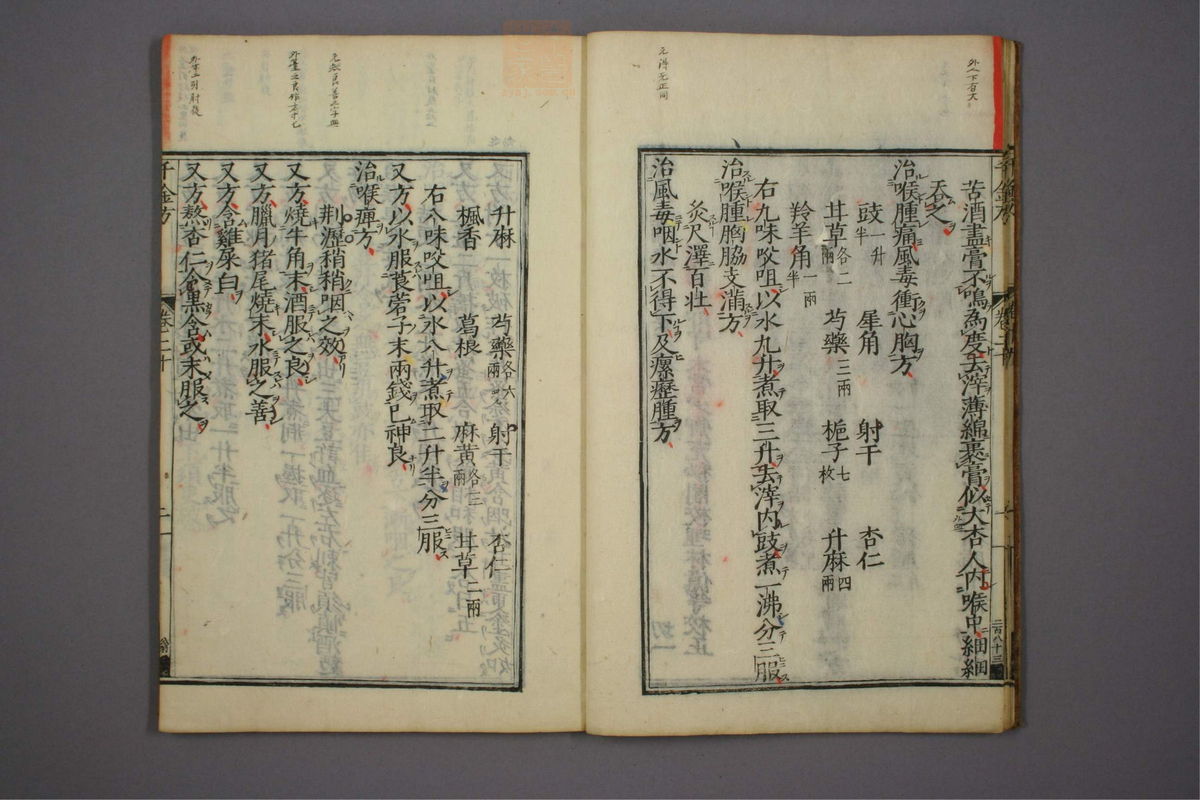 苦酒盡膏不鳴為度去滓薄綿裹膏似大杏人內喉中細細
吞之
治喉腫痛風毒衝心胸方
豉一升半 犀角 射干 杏仁
甘草各二兩 芍藥三兩 梔子七枚 升麻四兩
羚羊角一兩半
右九味㕮咀以水九升煮取三升去滓內豉煮一沸分三服
治喉腫胸脇支滿方
灸尺澤百壯
治風毒咽水不得下及瘰癧腫方
升麻 芍藥各四兩 射干 杏仁
楓香 葛根 麻黃各三兩 甘草二兩
右八味㕮咀以水八升煮取二升半分三服
又方以水服莨菪子末兩錢匕神良
治喉痺方
荆瀝稍稍咽之效
又方燒牛角末酒服之良
又方臘月猪尾燒末水服之善
又方含雞屎白
又方熬杏仁令黑含或末服之
千金方
卷二十